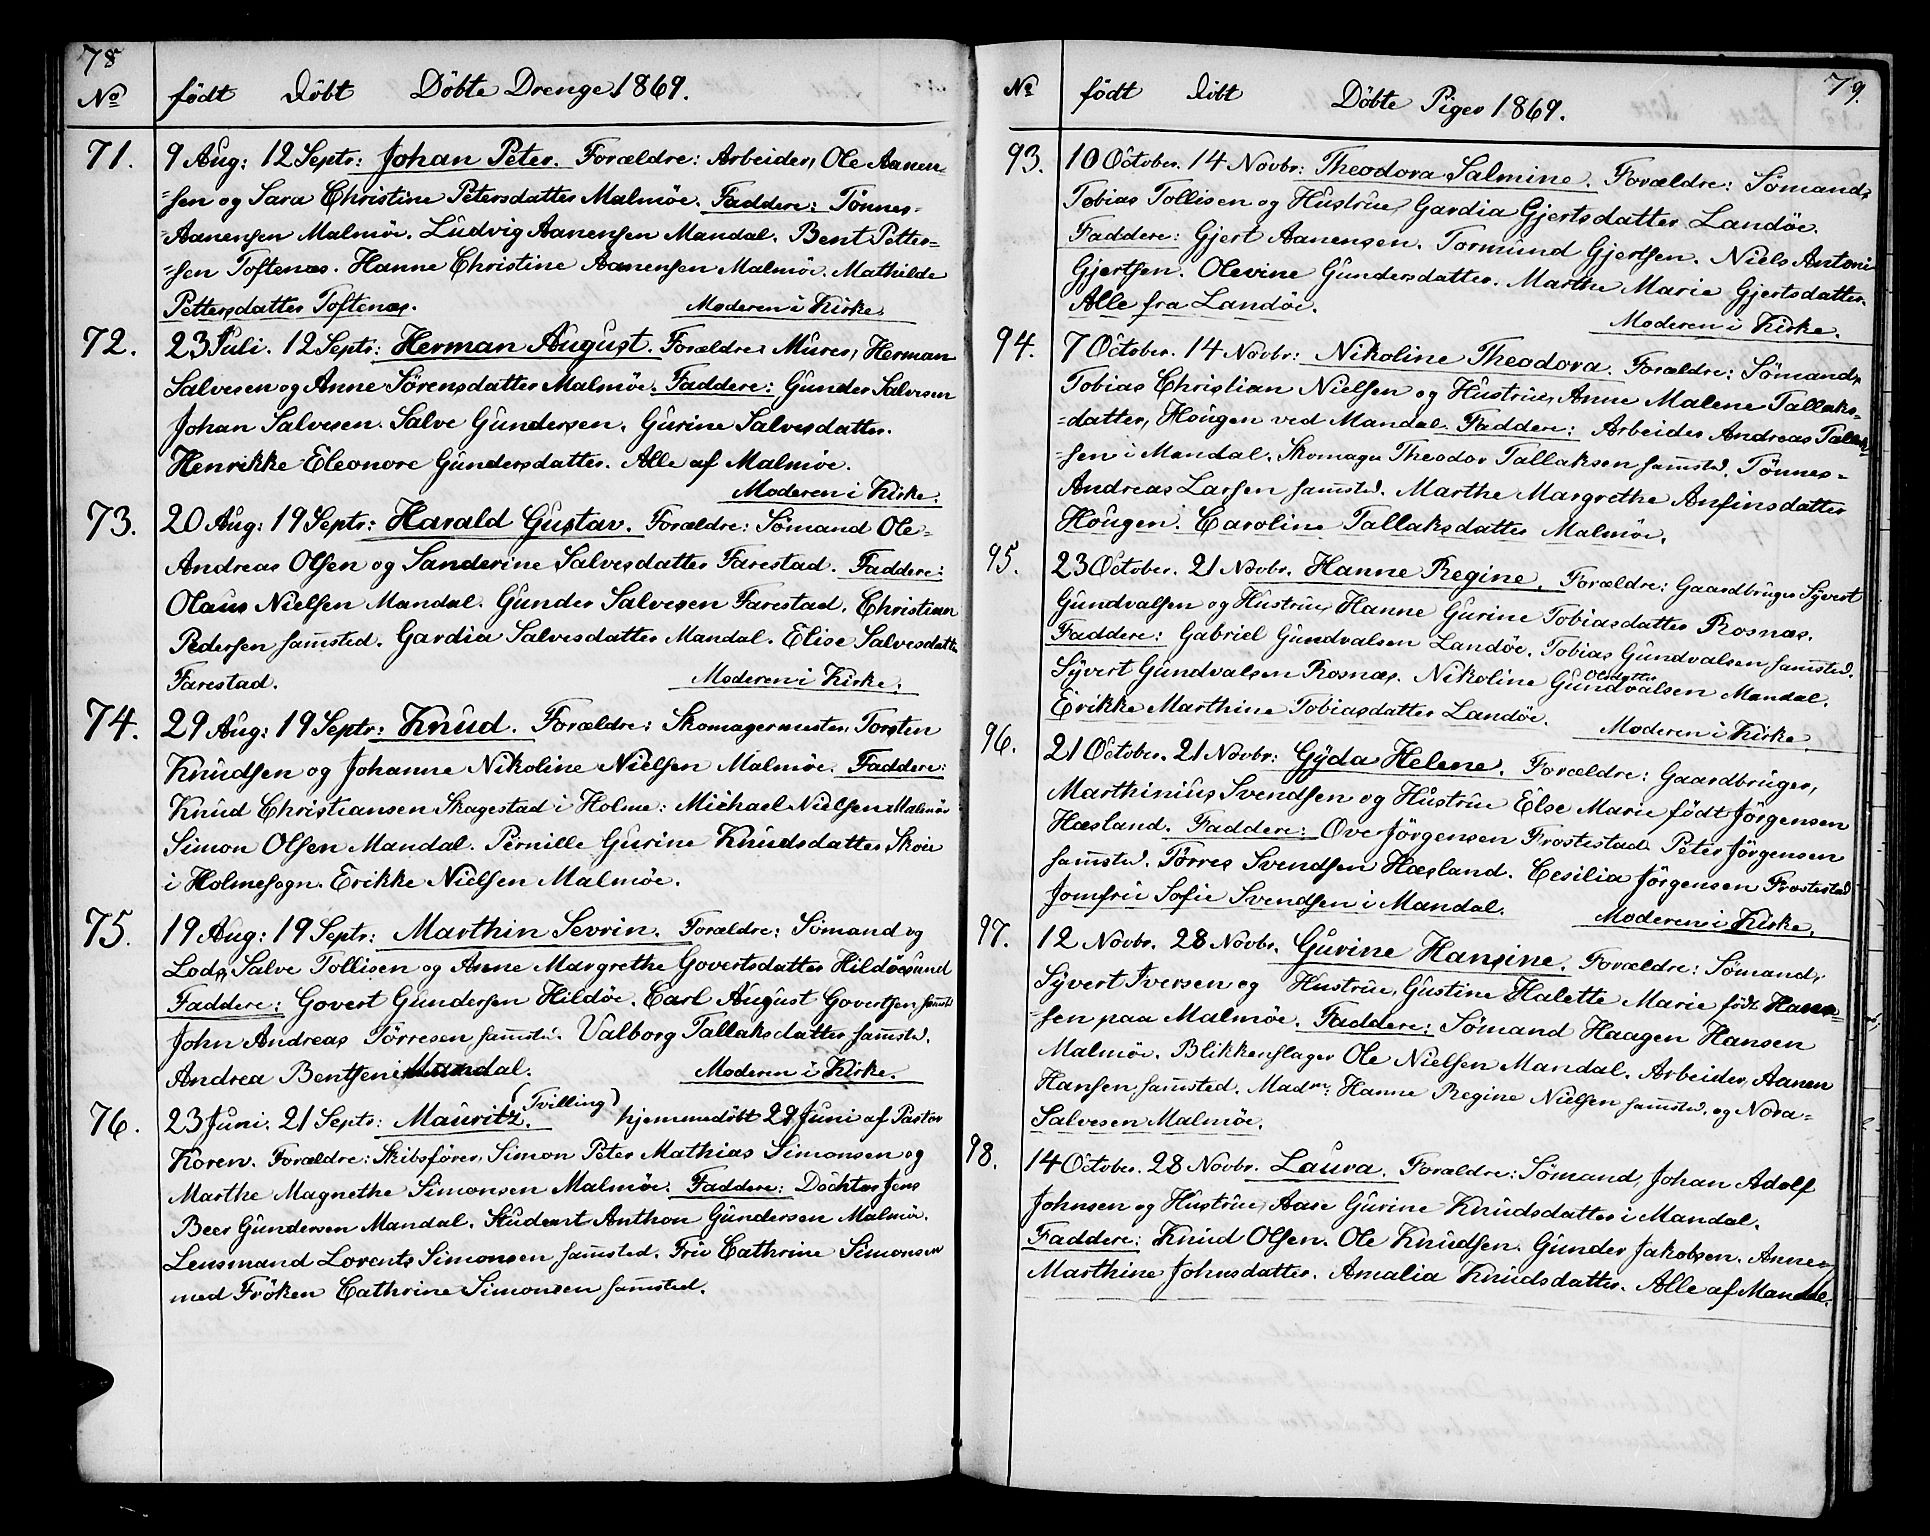 78
No födt Döbt Döbte Drenge 1869.
71. 9 Aug: 12 Septr: Johan Peter. Forældre: Arbeider, Ole Aanen-
=sen og Sara Christine Petersdatter Malmöe. Faddere: Tönnes-
Aanensen Malmöe. Ludvig Aanensen Mandal. Bent Petter-
=sen Toftenæs. Hanne Christine Aanensen Malmöe. Mathilde
Pettersdatter Toftenæs. Moderen i Kirke.
72. 23 Juli. 12 Septr: Herman August. Forældre: Murer, Herman
Salvesen og Anne Sörensdatter Malmöe. Faddere: Gunder Salvesen
Johan Salvesen. Salve Gundersen. Gurine Salvesdatter.
Henrikke Eleonore Gundersdatter. Alle af Malmöe.
Moderen i Kirke.
73. 20 Aug: 19 Septr: Harald Gustav. Forældre: Sömand Ole-
Andreas Olsen og Sanderine Salvesdatter Farestad. Faddere:
Olaus Nielsen Mandal. Gunder Salvesen Farestad. Christian
Pedersen samsted. Gardia Salvesdatter Mandal. Elise Salvesdatter
Farestad. Moderen i Kirke.
74. 29 Aug: 19 Septr: Knud. Forældre: Skomagermester, Torsten
Knudsen og Johanne Nikoline Nielsen Malmöe. Faddere:
Knud Christiansen Skagestad i Holme: Michael Nielsen Malmöe
Simon Olsen Mandal. Pernille Gurine Knudsdatter Skoie
i Holmesogn. Erikke Nielsen Malmöe.
75. 19 Aug: 19 Septr: Marthin Sevrin. Forældre: Sömand og
Lods, Salve Tollisen og Anne Margrethe Govertsdatter Hildöesund
Faddere: Govert Gundersen Hildöe. Carl August Govertsen, samst
John Andreas Törresen samstd. Valborg Tallaksdatter samstd.
Andrea Bentsen i Mandal. Moderen i Kirke.
76. 23 Juni. 21 Septr: Mauritz. (Tvilling) hjemmedöbt 29 Juni af Pastor
Koren. Forældre: Skibsförer, Simon Peter Mathias Simonsen og
Marthe Magnethe Simonsen Malmöe. Faddere: Docktor Jens
Beer Gundersen Mandal. Student Anthon Gundersen Malmöe.
Lensmand Lorents Simonsen samsted. Fru Cathrine Simonsen
med Fröken Cathrine Simonsen samsted.
79.
No födt Döbt Döbte Piger 1869.
93. 10 October. 14 Novbr: Theodora Salmine. Forældre: Sömand,
Tobias Tollisen og Hustrue, Gardia Gjertsdatter Landöe.
Faddere: Gjert Aanensen. Tormund Gjertsen. Niels Antoni
Gjertsen. Olevine Gundersdatter. Marthe Marie Gjertsdatter.
Alle fra Landöe.
Moderen i Kirke.
94. 7 October. 14 Novbr: Nikoline Theodora. Forældre: Sömand,
Tobias Christian Nielsen og Hustrue, Anne Malene Tallaks-
=datter, Hougen ved Mandal. Faddere: Arbeider Andreas Tallak-
=sen i Mandal. Skomager Theodor Tallaksen samsted. Tönnes-
Andreas Larsen samsted. Marthe Margrethe Anfinsdatter
Hougen. Caroline Tallaksdatter Malmöe.
95. 23 October. 21 Novbr. Hanne Regine. Forældre: Gaardbruger Syvert
Gundvalsen og Hustrue, Hanne Gurine Tobiasdatter Rosnæs.
Faddere: Gabriel Gundvalsen Landöe. Tobias Gundvalsen, samsted.
Syvert Gundvalsen Rosnæs. Nikoline Gundvalsen Olsdatter Mandal.
Erikke Marthine Tobiasdatter Landöe. Moderen i Kirke.
96. 21 October. 21 Novbr: Gyda Helene. Forældre: Gaardbruger,
Marthinius, Svendsen og Hustrue Else Marie födt Jörgensen
Hæsland. Faddere: Ove Jörgensen Frostestad. Peter Jörgensen
samsted. Törres Svendsen Hæsland. Cesilia Jörgensen Frostestad
Jomfru Sofie Svendsen i Mandal. Moderen i Kirke.
97. 12 Novbr. 28 Novbr. Gurine Hansine. Forældre: Sömand,
Syvert Iversen og Hustrue, Gustine Halette Marie födt Han-
=sen paa Malmöe. Faddere: Sömand Haagen Hansen
Malmöe. Blikkenslager Ole Nielsen Mandal. Arbeider, Aanen
Hansen samsted. Madm: Hanne Regine Nielsen samsted. og Nora=
Salvesen Malmöe.
98. 14 October. 28 Novbr. Laura. Forældre: Sömand, Johan Adolf
Johnsen og Hustrue, Aase Gurine Knudsdatter i Mandal.
Faddere: Knud Olsen. Ole Knudsen. Gunder Jakobsen. Anne
Marthine Johnsdatter. Amalia Knudsdatter. Alle af Mandal.